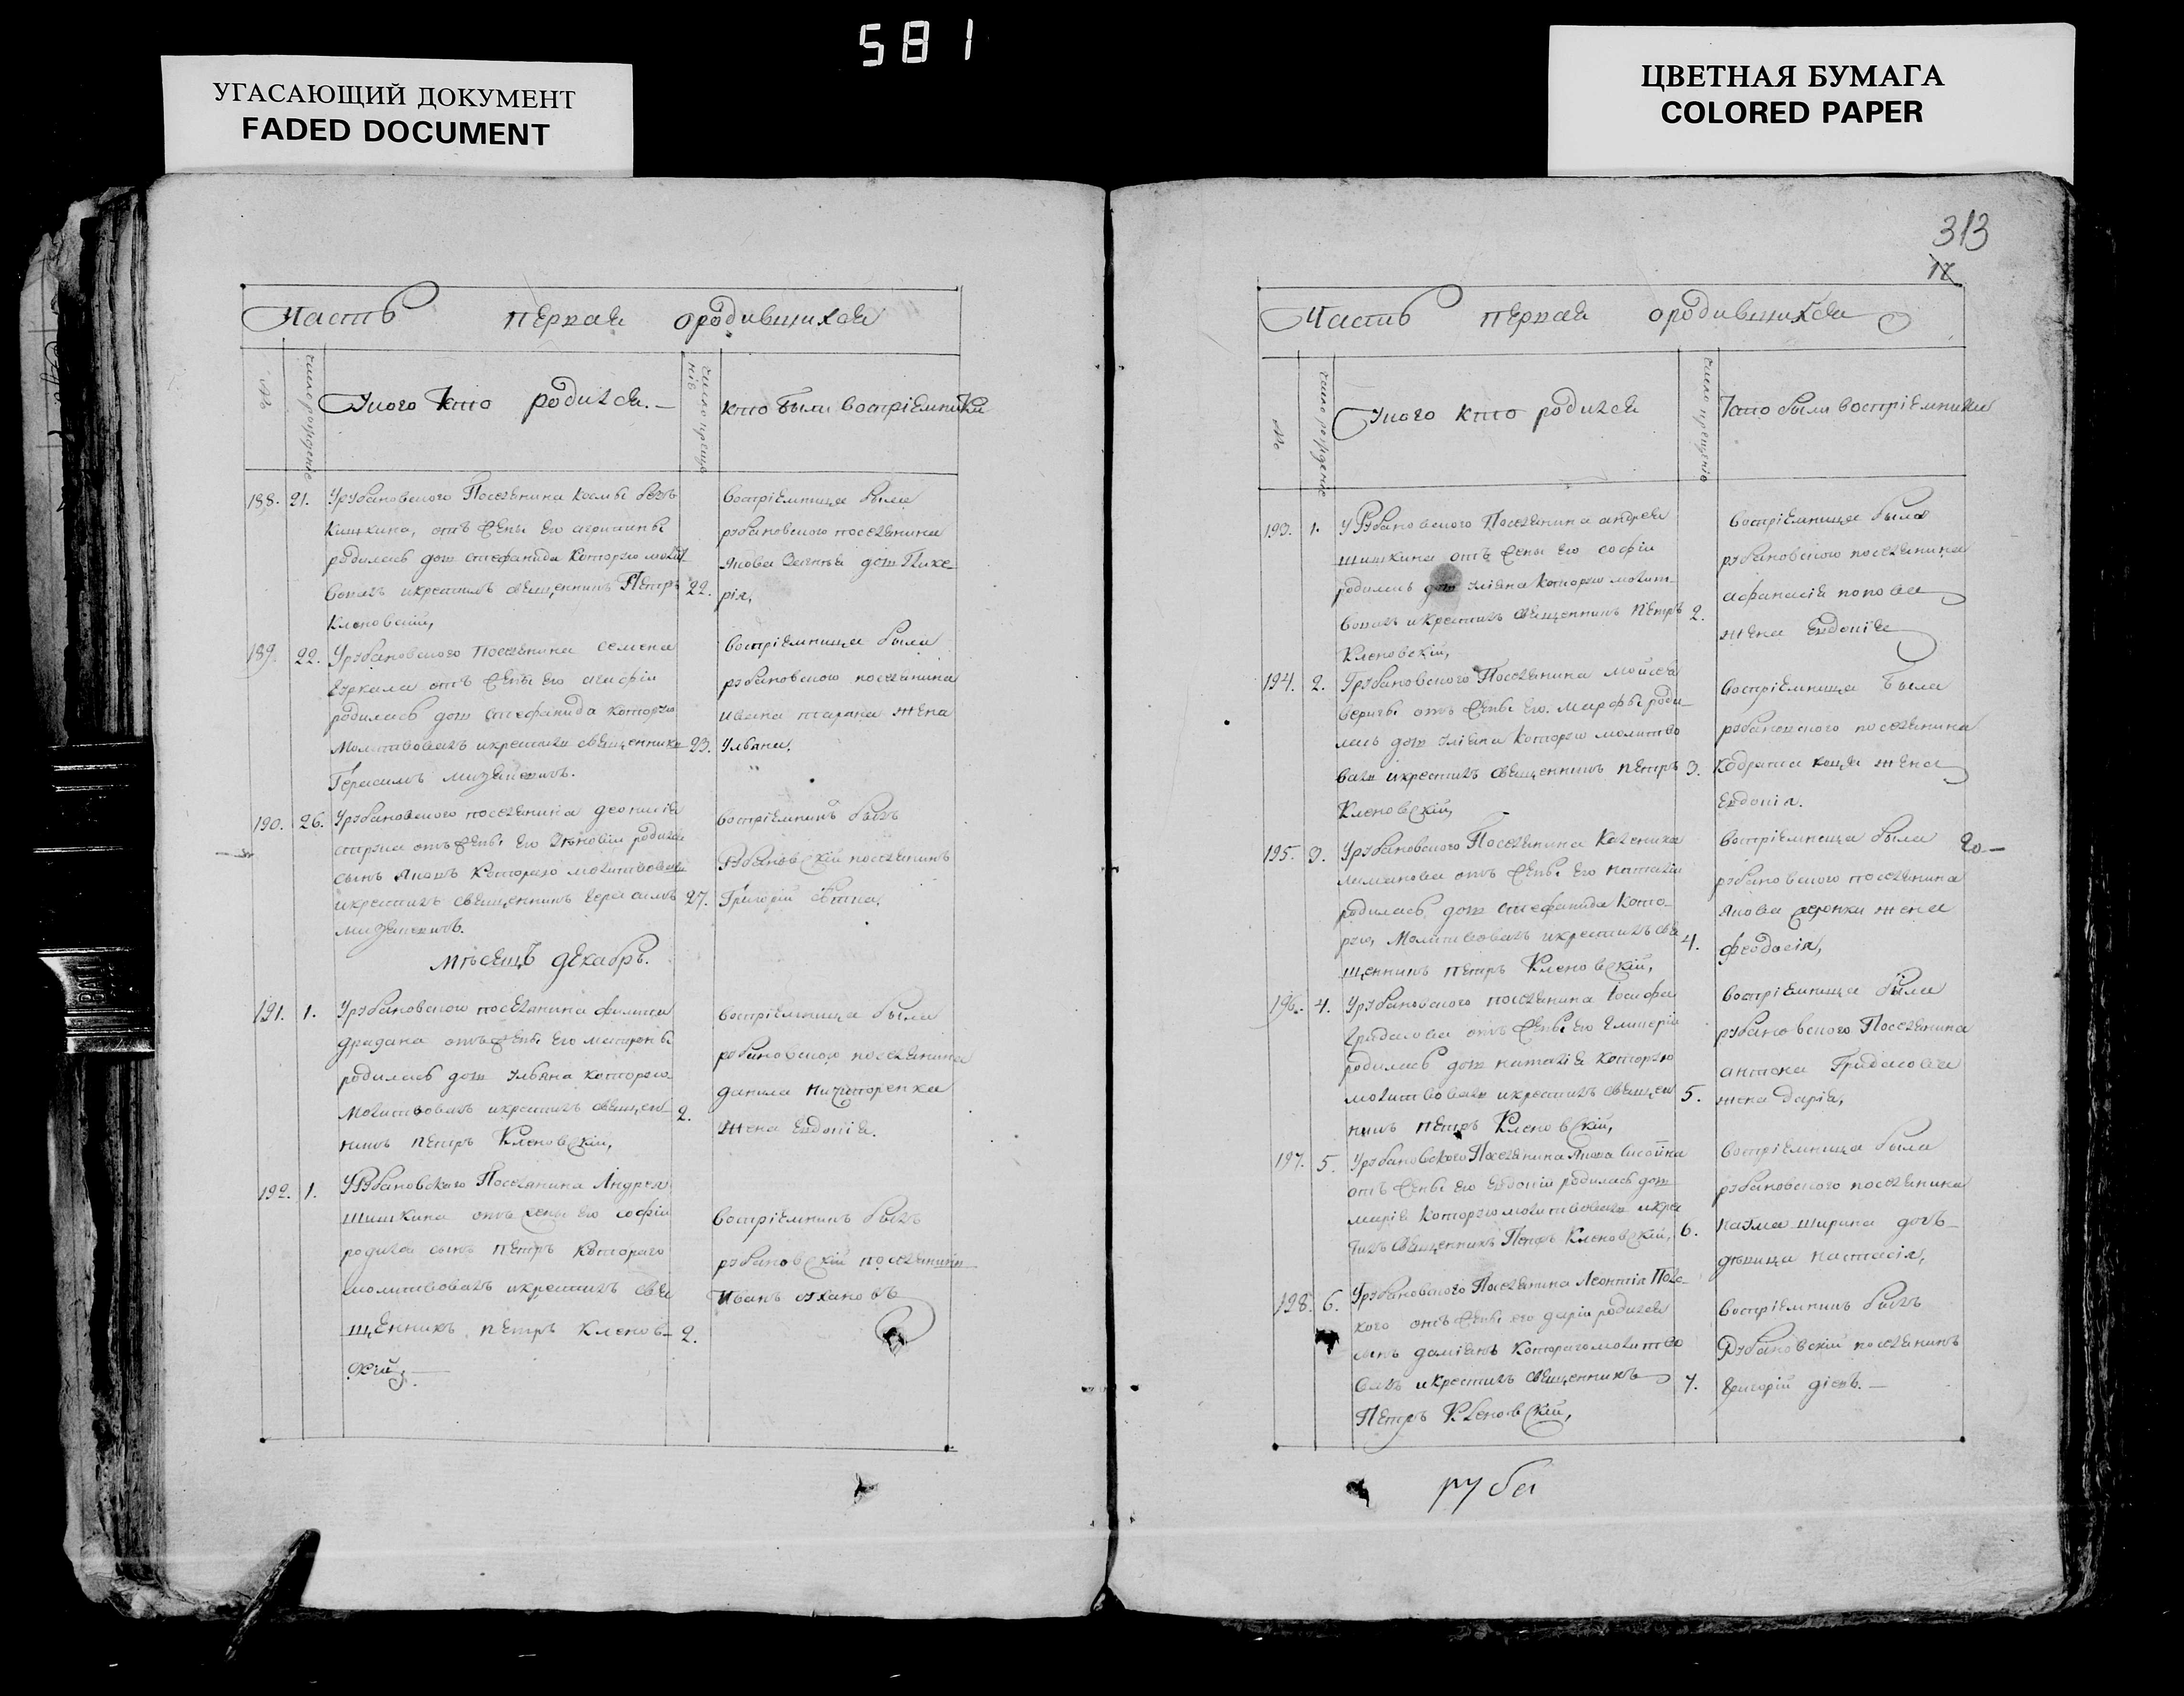 581
УГАСАЮЩИЙ ДОКУМЕНТ
FADED DOCUMENT
ЦВЕТНАЯ БУМАГА
COLORED PAPER
Часть первая ородившихся
№
число рождение
Укого кто родился.
число крещенія
кто были воспріемники
188. 21. Урубановского Поселянина
Кишкина, отъ жены его агрипины
родилась дощ стефанида которую молит
вовалъ икрестилъ священникъ Петръ 22.
Кленовский,
воспріемница была
рубановского поселянина
Якова дощ Глике
рія,
189. 22. Урубановского поселянина семена
отъ жены его агафіи
родилась дощ стефанида которую
молитвовалъ икрестилъ священникъ 23.
Герасимъ
воспріемница была
рубановского поселянина
ивана тарана жена
Ульяна,
190. 26. Урубановского поселянина деонисія
отъ жены его родился
сынъ Яковъ которого молитвовалъ
икрестилъ священникъ герасимъ 27.
воспріемникъ былъ
Рубановскій поселянинъ
Григорій
мѣсецъ декабръ.
191. 1. Урубановского поселянина филипа
отъ жены его матроны
родилась дощ Ульяна которою
молитвовалъ икрестилъ священ 2.
никъ петръ Кленовскій,
воспріемница была
рубановского поселянина
данила
жена евдокія.
192. 1. УРубановского Поселянина Андрея
шишкина отъ жены его софіи
родился сынъ петръ которого
молитвовалъ икрестилъ свя
щенникъ петръ кленов 2.
скій
воспріемникъ былъ
рубановскій поселянинъ
Иванъ
313
17
Часть первая ородившихся
№
число рождение
Укого кто родился
число крещенія
Кто были воспріемники
193. 1. УРубановского Поселянина андрея
шишкина отъ жены его софіи
родилась дощ уліяна которую молит
вовалъ икрестилъ священникъ петръ 2.
Кленовскій,
воспріемница была
рубановского поселянина
афанасія попова
жена Евдокія
194. 2. Урубановского Поселянина мойсея
отъ жены его марфы роди
лась дощ уліяна которую молитво
валъ икрестилъ священникъ петръ 3.
Кленовскій,
воспріемница была
рубановского поселянина
кодрата кощея жена
Евдокія.
195. 3. Урубановского Поселянина Каленика
лиманова отъ жены его наталіи
родилась дощ стефанида кото
рую, молитвовалъ икрестилъ свя 4.
щенникъ петръ Кленовскій,
воспріемница была
рубановского поселянина
Якова жена
феодосія,
20
196. 4. Урубановского поселянина іосифа
гридасова отъ жены его гликеріи
родилась дощ наталія которую
молитвовалъ икрестилъ священ 5.
никъ петръ Кленовскій,
воспріемница была
рубановского Поселянина
антона Гридасова
жена дарія,
197. 5. Урубановского Поселянина Якова
отъ жены его Евдокіи родилась дощ
марія которую молитвовалъ икрес
тилъ священникъ Петръ Кленовскій, 6.
воспріемница была
рубановского поселянина
наума ширина дочъ
дѣвица настасія,
198. 6. Урубановского Поселянина Леонтія
кого отъ жены его даріи родился
сынъ даміянъ которого молитво
валъ икрестилъ священникъ 7.
Петръ Кленовскій,
воспріемникъ былъ
Рубановскій поселянинъ
григорій
руба